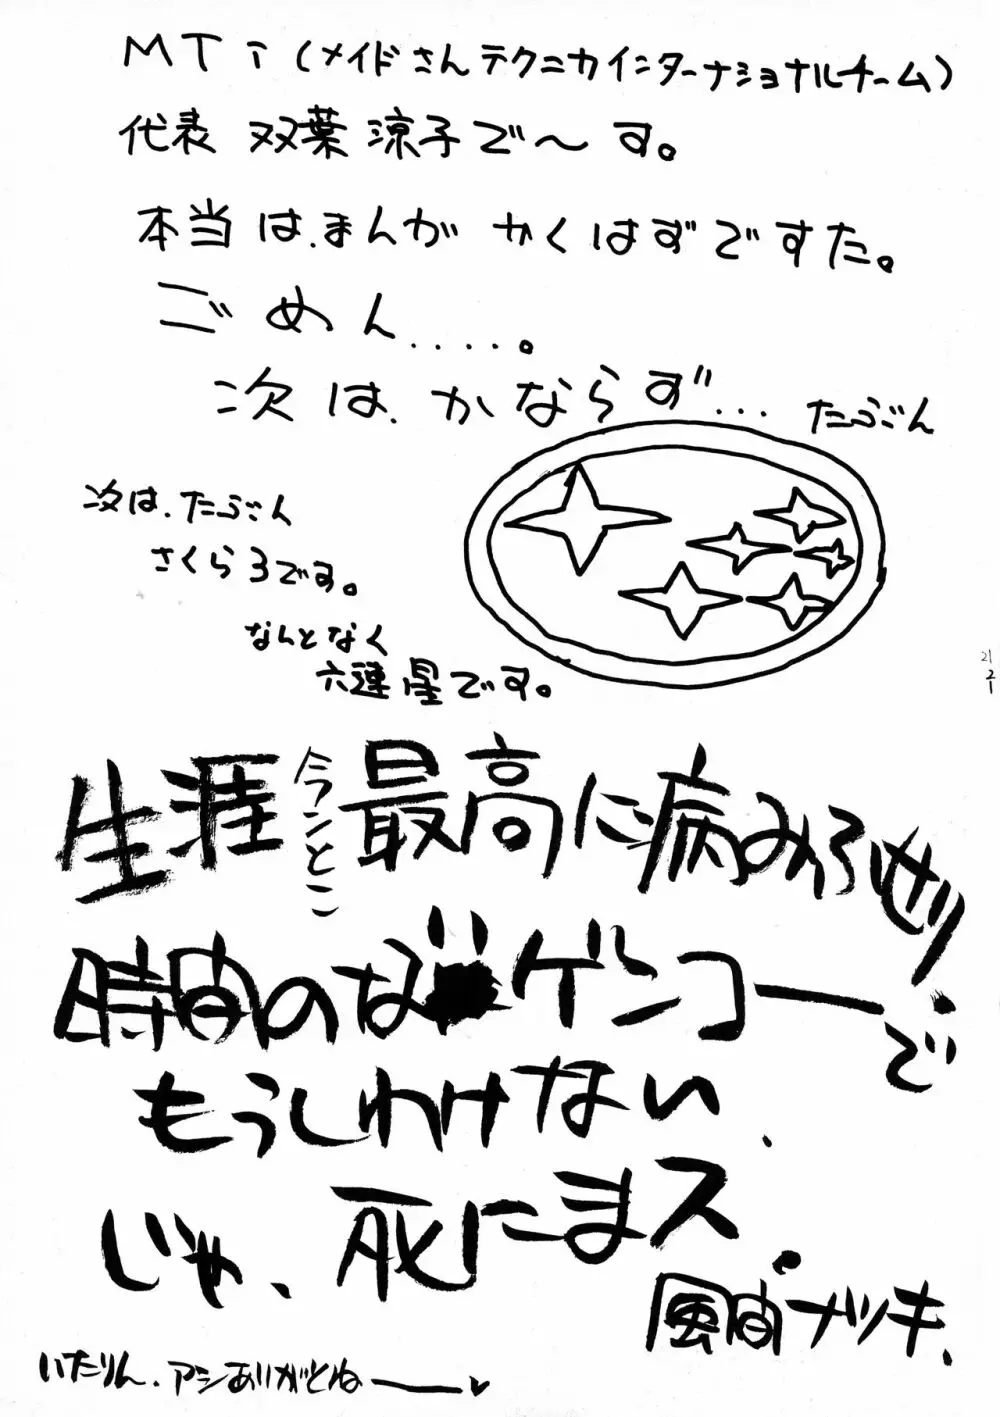 MTi(メイドさんテクニカインターナショナルチーム)
代表 双葉涼子で〜す。
本当は、まんが かくはずですた。
ごめん....。
次は、かならず... たぶん
次は、たぶん
さくら3です。
なんとなく
六連星です。
生涯今ンとこ最高に病み
時間のな ゲンコーで
もうしわけない、
じゃ、死にまス。
風間ナツキ、
いたりん、アシありがとねー